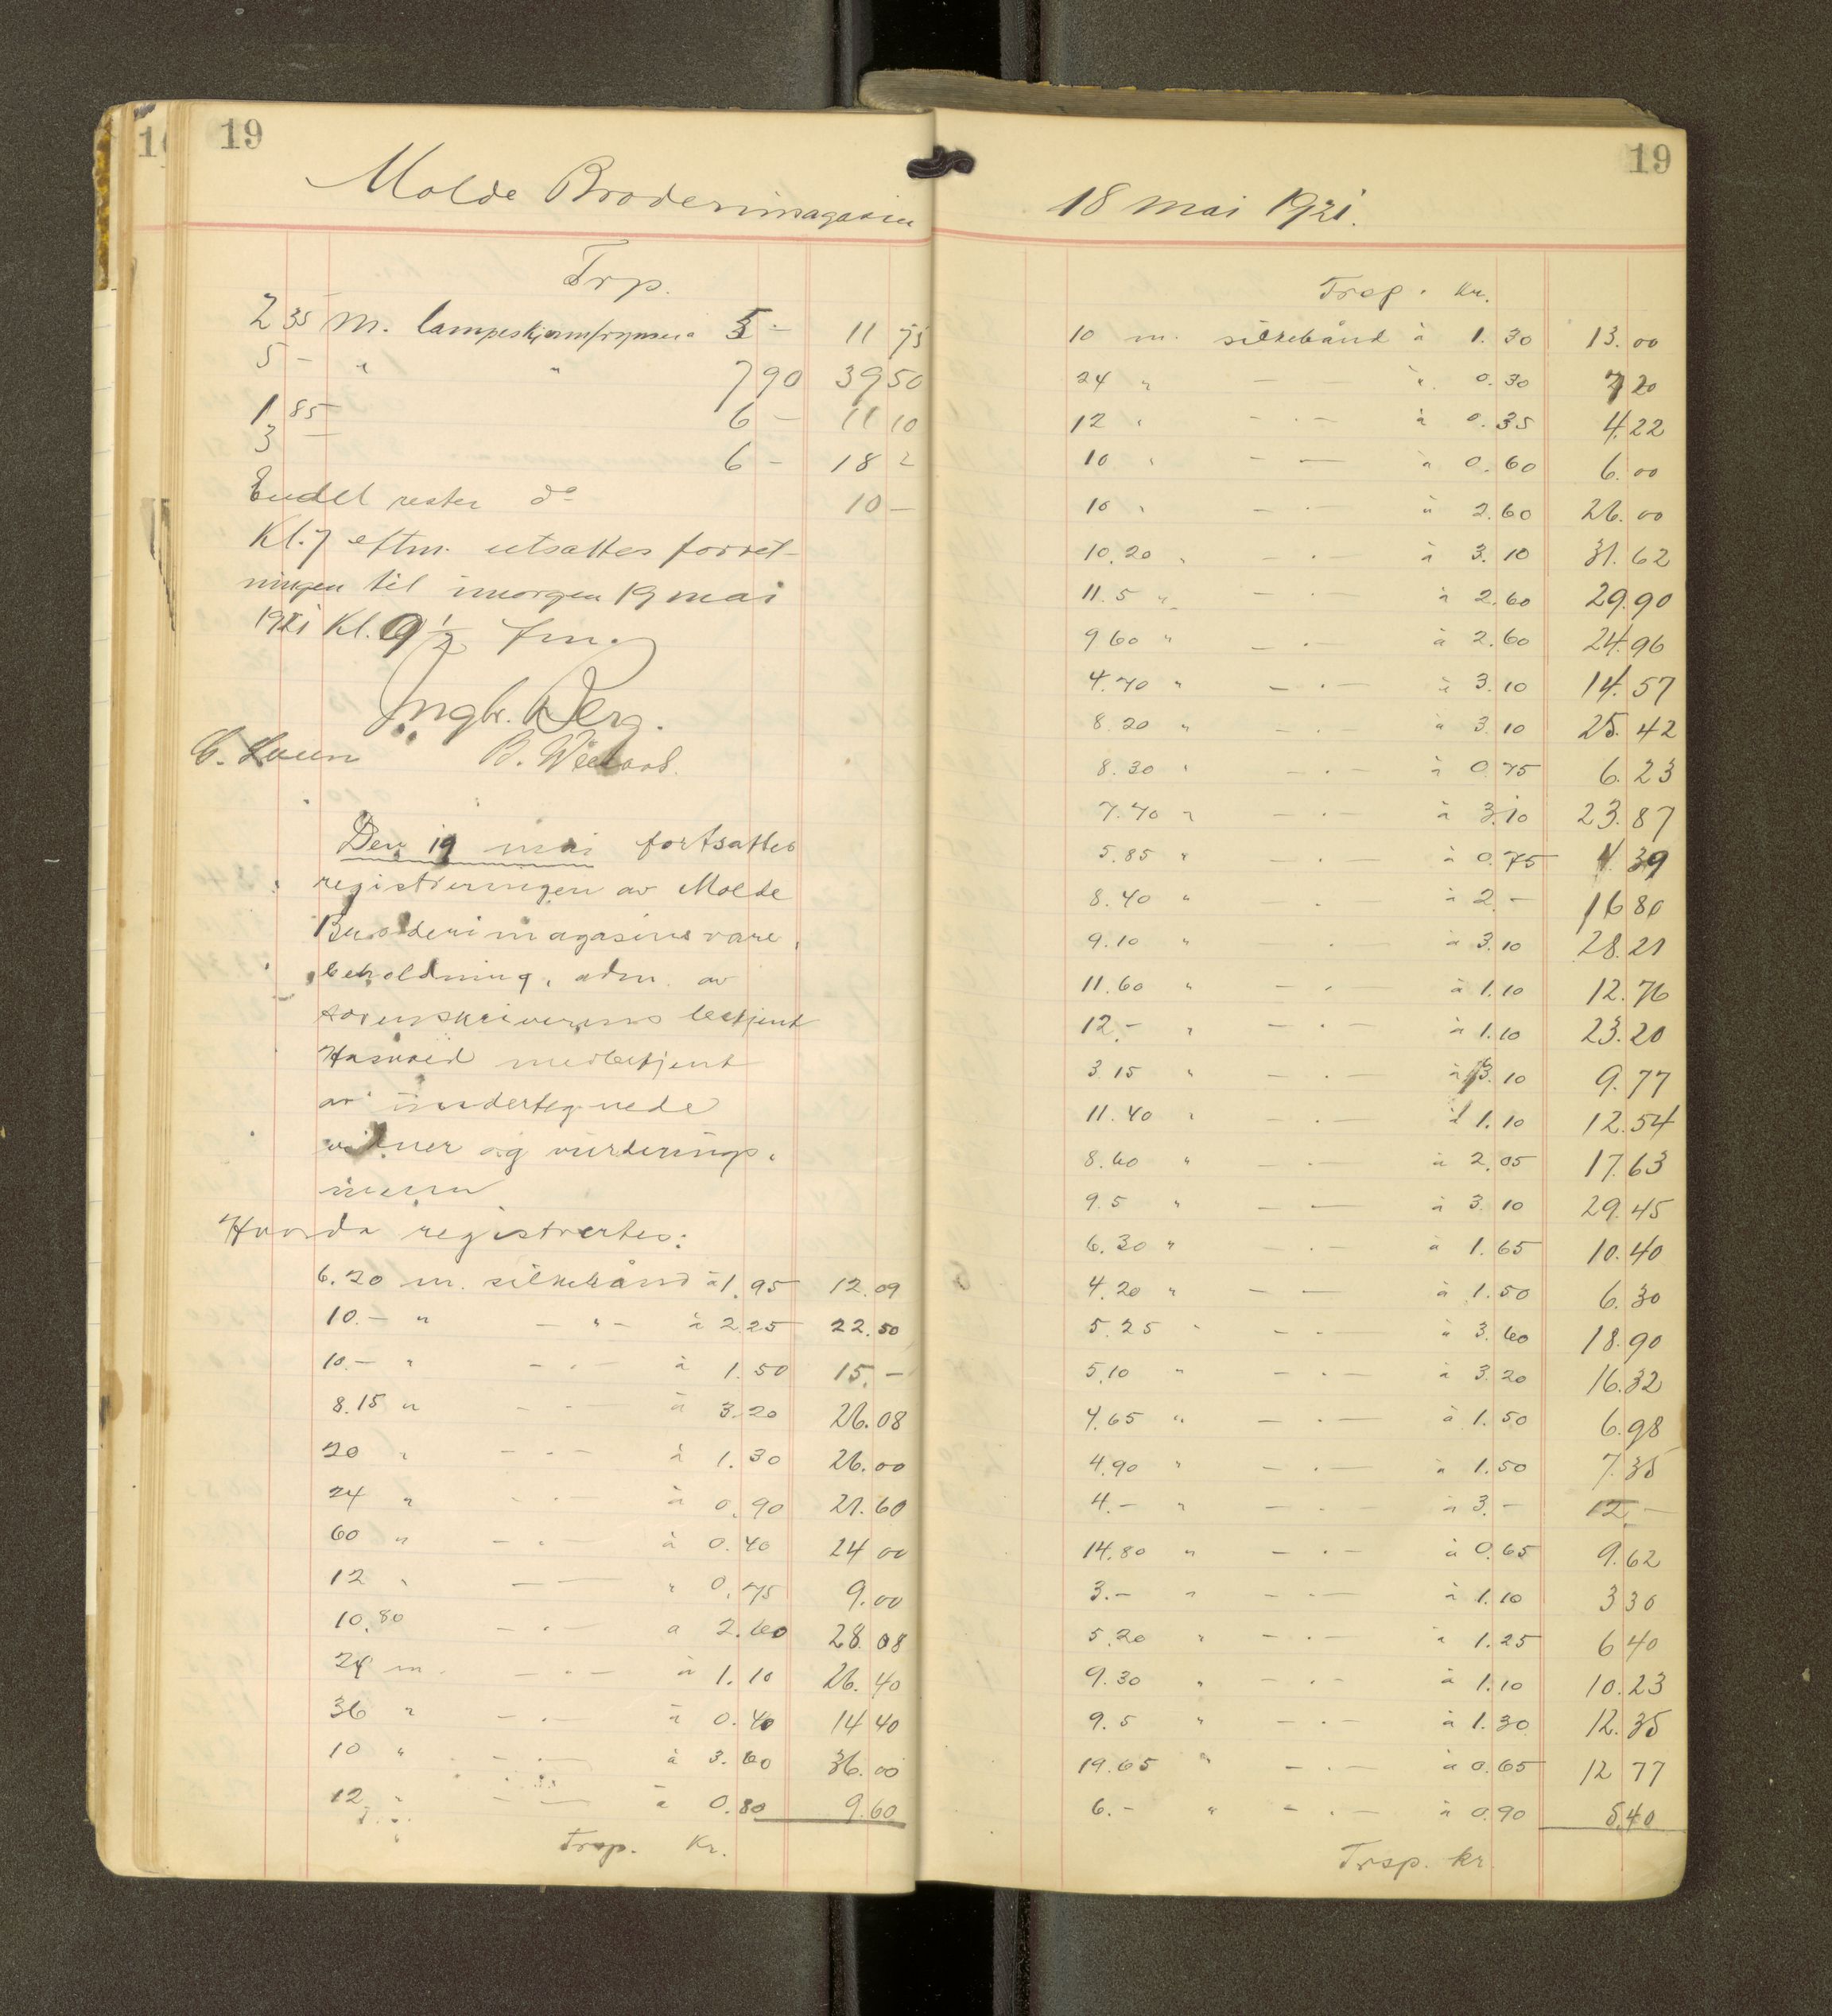 19
Molde Broderimagasin
Trp.
2 35 m. lampeskjermfrynser 5 - 11 75
5 - " " 7 90 39 50
1 85 6 - 11 10
3 - 6 - 18
Endel rester do 10 -
Kl. 7 eftm. utsattes forret-
ningen til imorgen 19 mai
1921 Kl. 9 1/2 fm.
Ingbr. Berg.
B.
Den 19 mai fortsattes
registreringen av Molde
Broderimagasins vare,
beholdning, adm. av
sorenskriverens betjent
medbetjent
av undertegnede
vidner og vurderings.
menn
Hvorda registrertes:
6.20 m. silkebånd à 1.95 12.09
10.- " - " - à 2.25 22.50
10.- " - . - à 1.50 15.-
8.15 " - - à 3.20 26.08
20 " - . - à 1.30 26.00
24 " - . - à 0.90 21.60
60 " - . - à 0.40 24 00
12 " - - " 0.75 9.00
10.80 - . - a 2.60 28.08
24 m. - . - à 1.10 26.40
36 " - . - à 0.40 14 40
10 " - . - à 3.60 36.00
12 " - - à 0.80 9.60
Trsp. Kr.
19
18 mai 1921.
Trsp. Kr.
10 m. silkebånd à 1.30 13.00
24 " - - à 0.30 7 20
12 " - . - à 0.35 4.22
10 " - - à 0.60 6.00
10 " - . - à 2.60 26.00
10.20 " - . - à 3.10 31.62
11.5 " - . à 2.60 29.90
9 60 " - . - à 2.60 24.96
4.70 " - . - à 3.10 14.57
8.20 " - . - à 3.10 25.42
8.30 " - . - à 0.75 6.23
7.70 " - . - à 3.10 23.87
5.85 " - . - à 0.75 4.39
8.40 " - . - à 2.- 16 80
9.10 " - . - à 3.10 28.21
11.60 " - . - à 1.10 12.76
12.- " - . - à 1.10 23.20
3 15 " - . - à 3.10 9.77
11.40 " - . - à 1.10 12.54
8.60 " - . - à 2.05 17.63
9.5 " - - à 3.10 29.45
6.30 " - . - à 1.65 10.40
4.20 " - - à 1.50 6.30
5.25 " - . - à 3.60 18.90
5.10 " - . - à 3.20 16.32
4.65 " - . - à 1.50 6.98
4.90 " - . - à 1.50 7.35
4.- " - . - à 3.- 12.-
14.80 " - . - à 0.65 9.62
3.- " - . - à 1.10 3 30
5.20 " - . - à 1.25 6 40
9.30 " - . - à 1.10 10.23
9.5 " - . - à 1.30 12.35
19.65 " - . - à 0.65 12 77
6.- " - . - à 0.90 5.40
Trsp. kr.